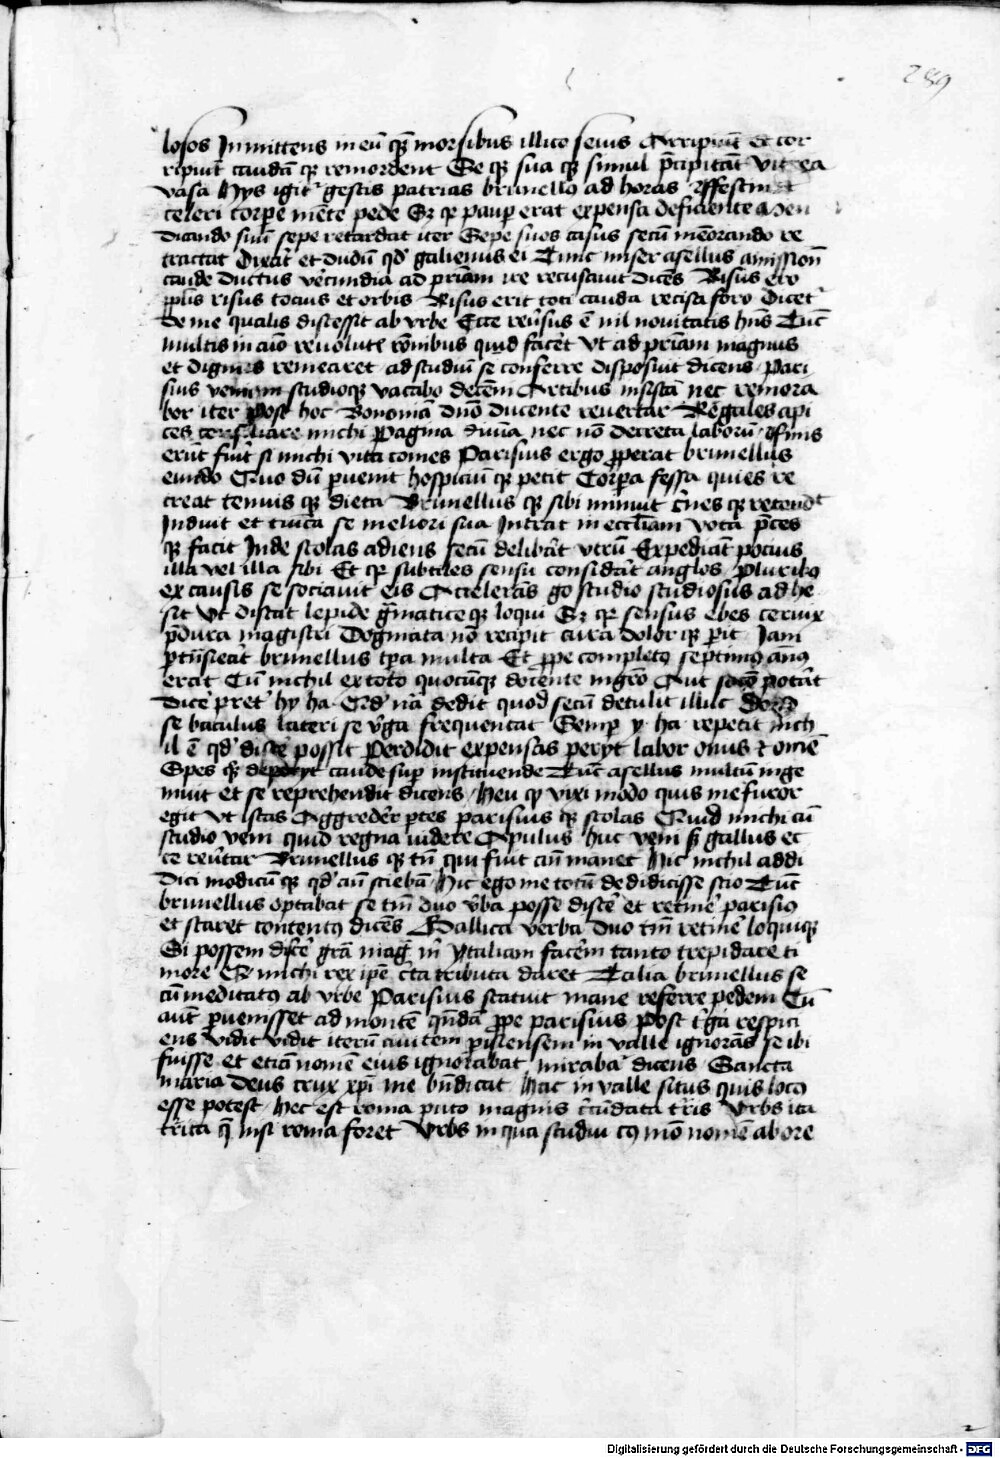 289
losos Inmittens in eū qꝫ morsibus illico seuis Arripiūt et cor
ripiūt caudā qꝫ remordent Se qꝫ sua qꝫ simul p̄cipitāt vit ea
vasa Hys igit᷑ gestis patrias brunellꝰ ad horas
celeri corpe mēte pede Sꝫ qꝛ paup erat expensa deficiente Men
dicando suū sepe retardat iter Sepe suos casus secū memorando re
tractat Dixit et dudū qd̓ galienus ei Tunc miser asellus amissiōn
caude ductus verecundia ad priam ire recusauit dicēs Risus ero
ppl̓is risus tocius et orbis Risus erit toti cauda recisa foro Dicet᷑
de me qualis discessit ab vrbe Ecce reūsus ē nil nouitatis hn̄s Tūc
multis in aīo reuolutꝭ rōnibus quid facēt vt ad priam magnus
et dignus remearet ad studiū se conferre disposuit dicens Pari
sius veniam studioqꝫ vacabo decēm Artibus insistā nec remora
bor iter post hoc Bononiā dnō ducente reuertar Regales api
ces michi Pagina diuīa nec nō decreta laborū finis
erūt fuit si michi vita comes Parisius ergo pperat brunellus
eundo Quo dū puenit hospiciū qꝫ petit Corpa fessa quies re
creat tenuis qꝫ dieta Brunellus qꝫ sibi minuit crines qꝫ
Induit et tunica se meliori sua Intrat in eccliam vota pces
qꝫ facit Inde scolas adiens secū deliberat vtrū Expediāt pocius
illa vel illa sibi Et qꝛ subtiles sensu considerat anglos Pluribꝰ
ex causis se sociauit eis Accelerās go studio studiosus adhe
sit Vt discat lepide grāmatice qꝫ loqui Sꝫ qꝛ sensus ebes ceruix
p̄dura magistri Dogmata nō recipit cura dolor qꝫ perit Iam
ptrāsierat brunellus tpa multa Et ppe completꝰ septimꝰ ānꝰ
erat Cū nichil ex toto quocūqꝫ docente mgrō Aut socio poterat
dice᷑ pret᷑ hy ha Qd̓ nā dedit quod secū detulit illuc
se baculus lateri se v̓ga frequentat Semp y ha repetit nich
il ē qd̓ disce᷑ possit Perdidit expensas peryt labor onus & omē
Spes qꝫ deperyt caude sup instituende Tūc asellus multū inge
muit et se reprehendit dicens Heu qꝛ vixi modo quis me furor
egit vt istas Aggrederer ptes parisius qꝫ scolas Quid michi cū
studio veni quid regna videre Apulus huc veni sꝫ gallus ec
ce reūtar Brunellus qꝫ tn̄ qui fuit an̄ manet Hic nichil addi
dici modicū qꝫ qd̓ an̄ sciebā Hic ego me totū dedidicisse scio Tūc
brunellus optabat se tm̄ duo v̓ba posse disce᷑ et retine᷑ parisius
et staret contentus dicēs Gallica verba duo tm̄ retine᷑ loquiqꝫ
Si possem disce᷑ grā mag̓ in ytaliam facēm tanto trepidare ti
more Qd̓ michi rex ipse c̄ta tributa daret Talia brunellus se
cū meditatꝰ ab vrbe Parisius statuit mane referre pedem Cū
aut̄ peruenisset ad montē qn̄dā ppe parisius post t̓ga respici
ens vidit vidit iterū ciuitem pisiensem in valle ignorās se ibi
fuisse et etiā nomē eius ignorabat mirabat᷑ dicens Sancta
maria deus crux xp̄i me bn̄dicat Hac in valle situs quis locꝰ
esse potest Hec est roma puto magnis c̓cūdata t̓ris Vrbs ita
nisi roma foret Vrbs in qua studui cꝰ mō nomē ab ore
Digitalisierung gefördert durch die Deutsche Forschungsgemeinschaft - DFG